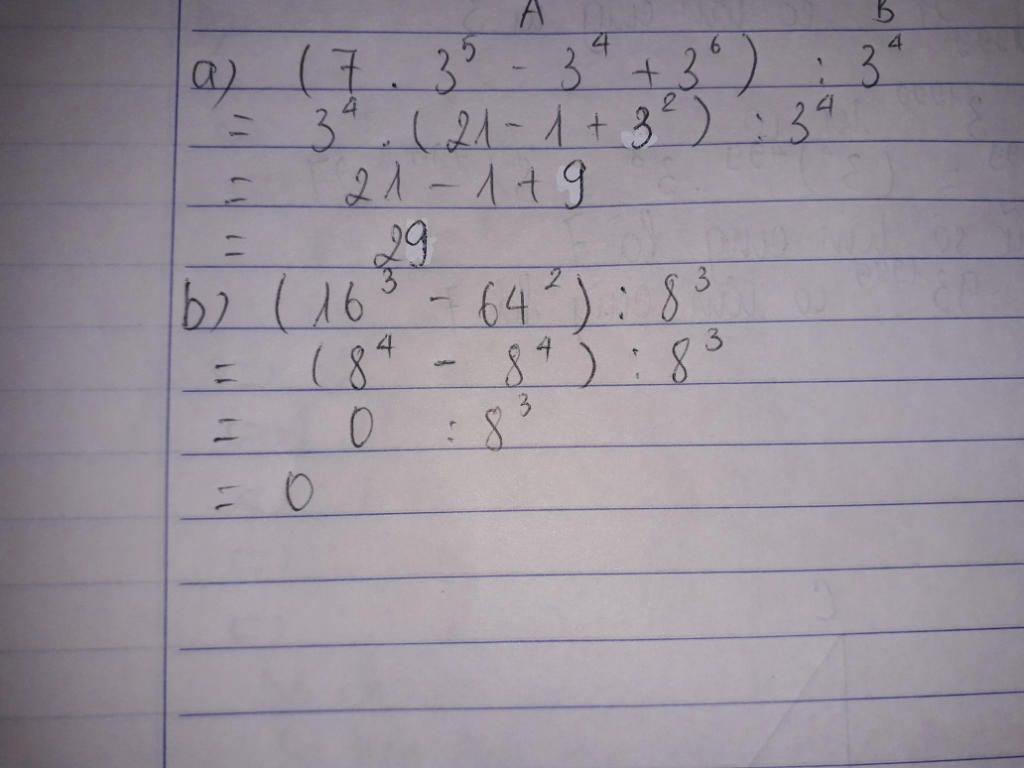 A B
a) (7 . 3⁵ - 3⁴ + 3⁶) : 3⁴
= 3⁴ . (21 - 1 + 3²) : 3⁴
= 21 - 1 + 9
= 29
b) (16³ - 64²) : 8³
= (8⁴ - 8⁴) : 8³
= 0 : 8³
= 0